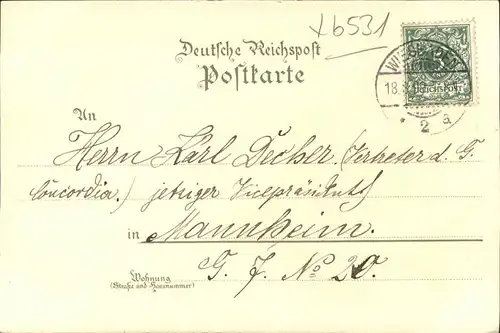 x6531
Deutsche Reichspost
Postkarte
WIESBADEN
18.
REICHSPOST
* 2 a
An
Herrn Karl Decker, (Vertreter d. G.
Concordia.) jetziger Vicepräsident
in Mannheim.
G. 7. No 20.
Wohnung
(Straße und Hausnummer)